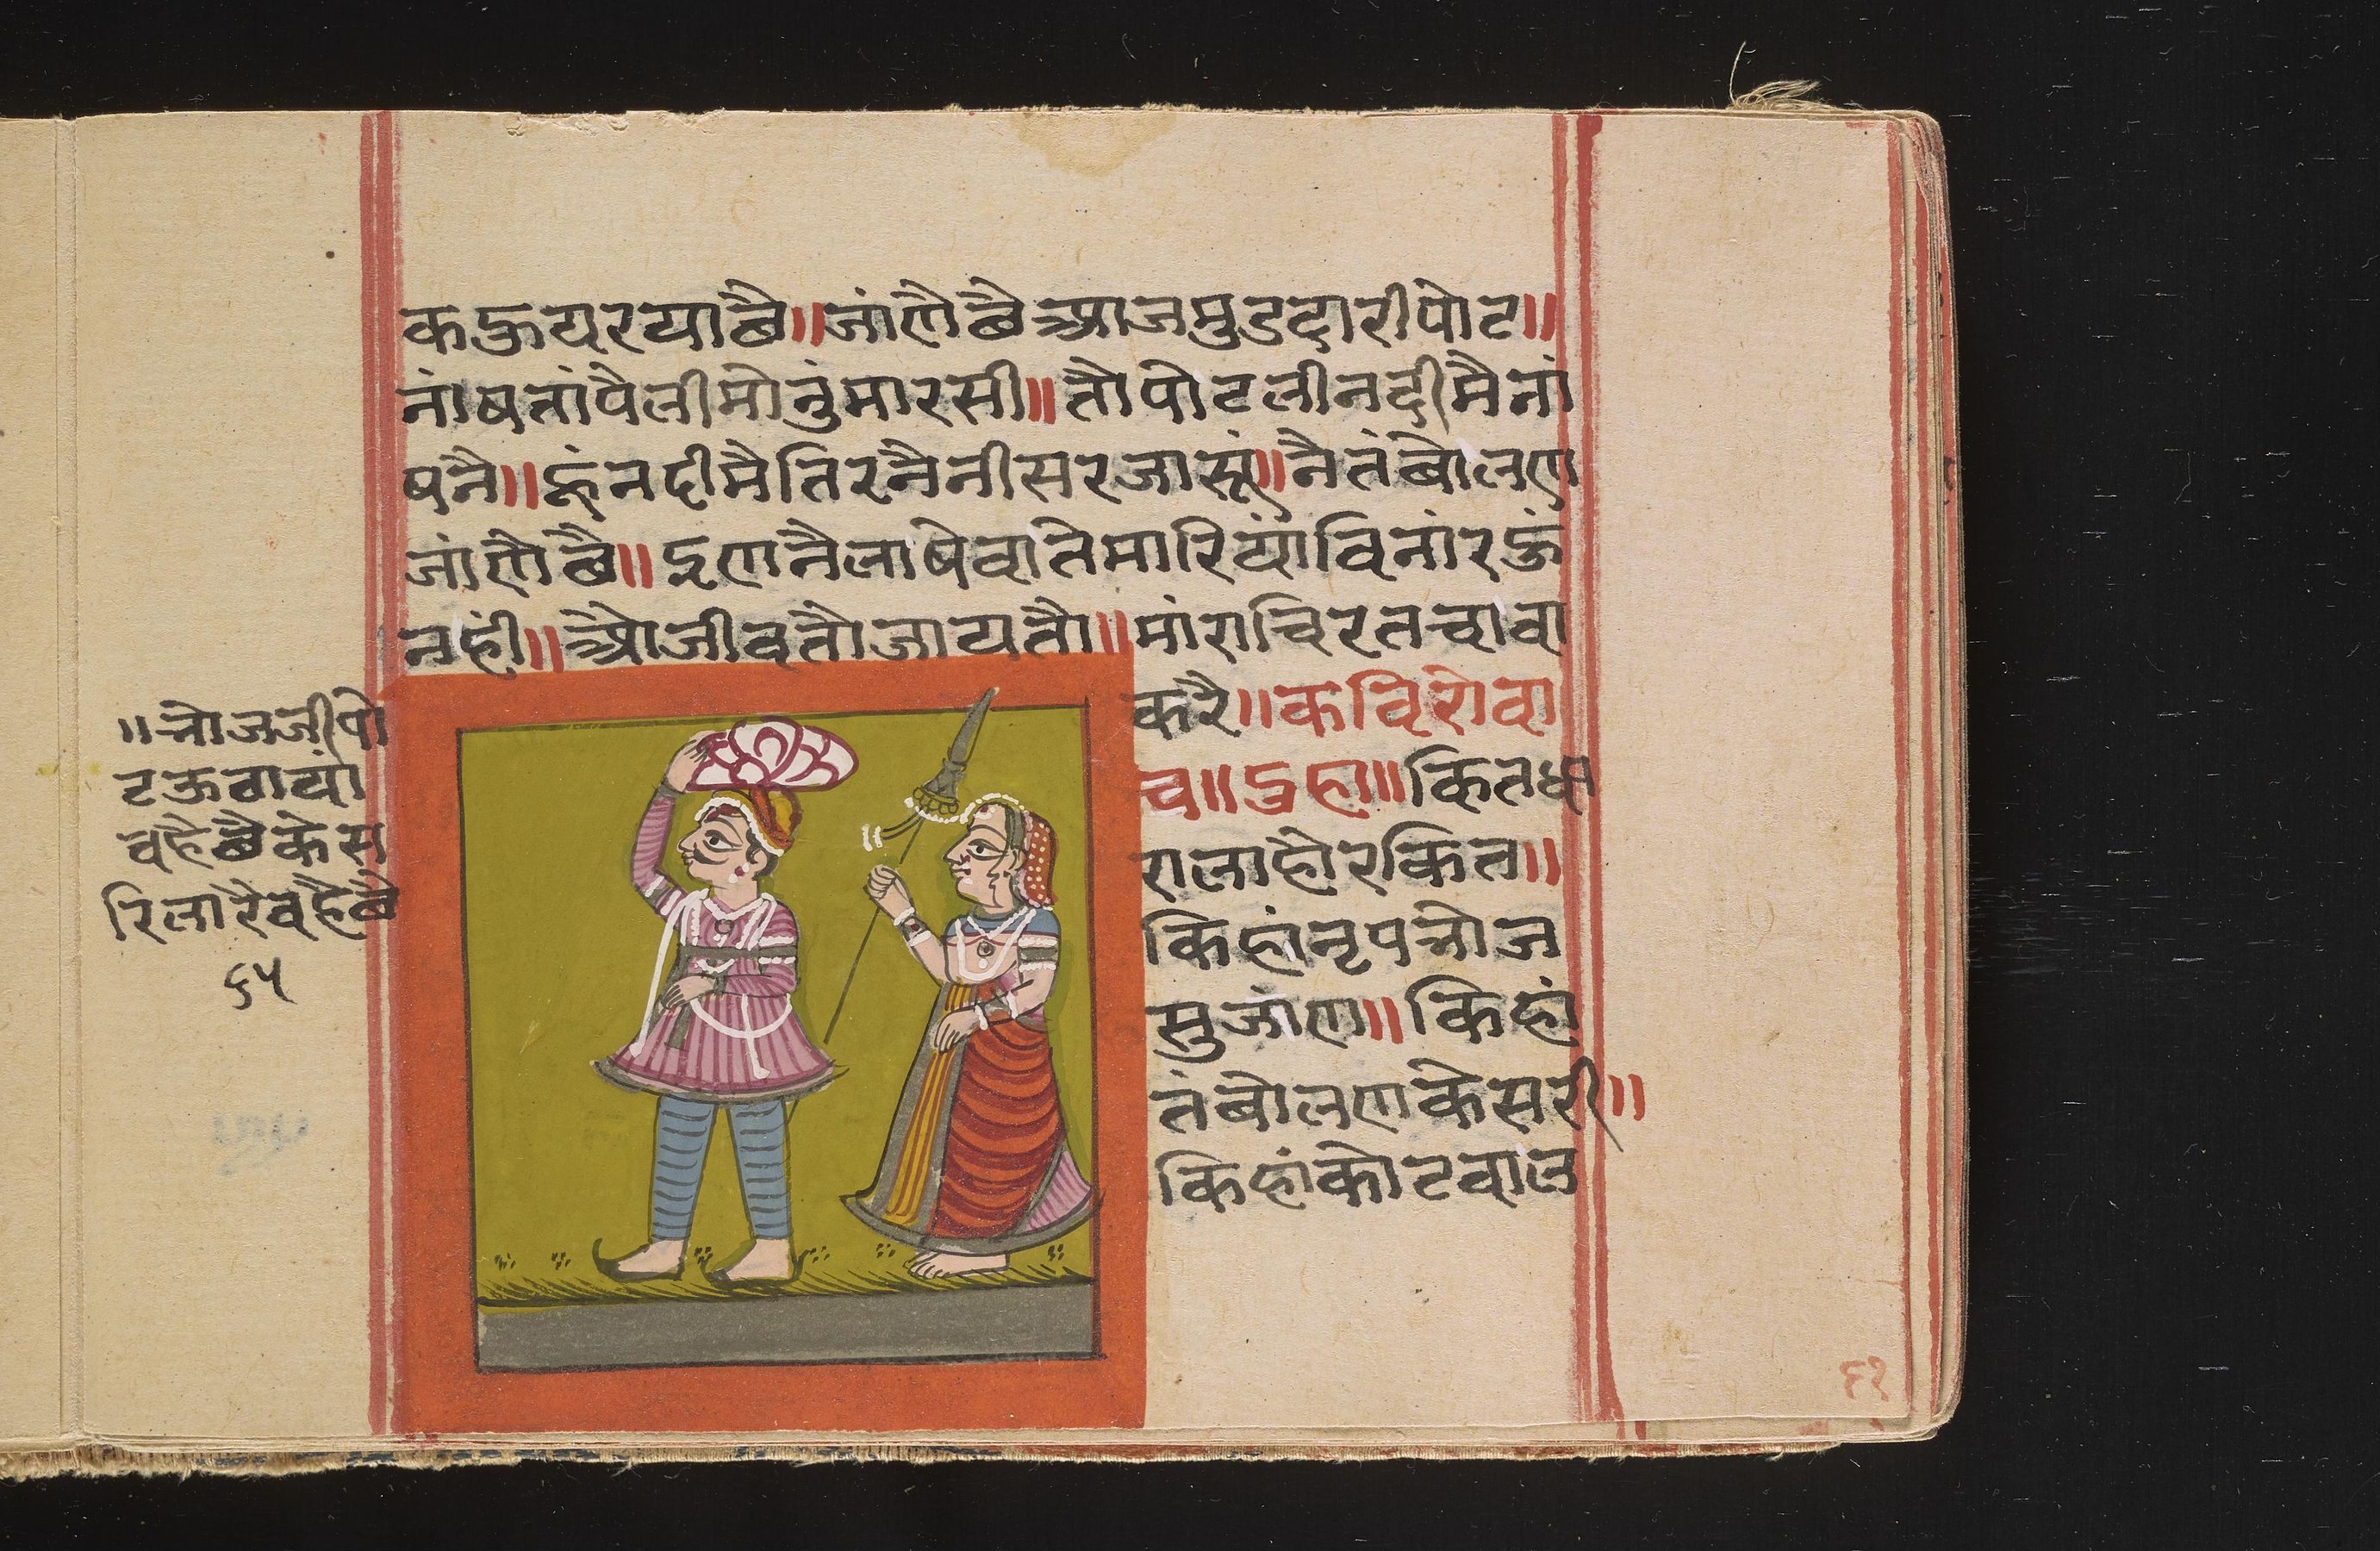 कऊयरयाछै॥जांणैछैआजमुडदारीपोट॥
नांषतांपैलीमोनुंमारसी॥तौपोटलीनदीमैनां
षनै॥हूंनदीमैतिरनैनीसरजासूं॥नैतंबोलण
जांणैछै॥इणनैलाषेवातेमारियांविनांरऊं
नहीं॥औजीवतौजायतौ॥मांराचिरतचावा
करै॥कविरोवा
च॥दुहा॥कितधा
रालाहौरकित॥
किहांनृपभोज
सुजांण॥किहां
तंबोलणकेसरी॥
किहांकोटवाल
॥भोजजीपो
टऊवायां
वहैछैकेस
रिलारैवहैछै
६५
६१